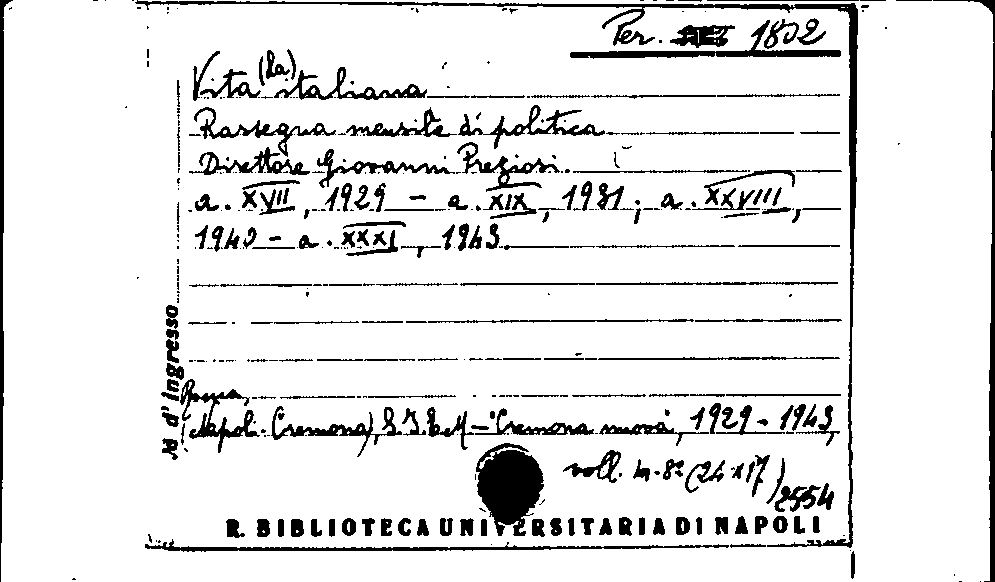 Per. 1802
Vita (La) italiana
Rassegna mensile di politica.
Direttore Giovanni Preziosi.
a. XVII, 1929 - a. XIX, 1931; a. XXVIII,
1940 - a. XXXI, 1943.
Roma,
(Napoli-Cremona), S.I.E.M - "Cremona nuova", 1929-1943,
voll. in-8º (24x17)
2554
R. BIBLIOTECA UNIVERSITARIA DI NAPOLI
d'ingresso